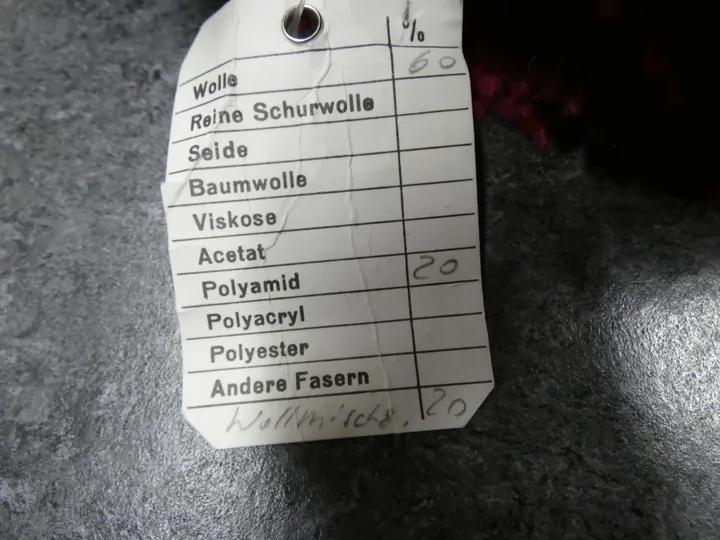 %
Wolle 60
Reine Schurwolle
Seide
Baumwolle
Viskose
Acetat
Polyamid 20
Polyacryl
Polyester
Andere Fasern
Wollmischg. 20